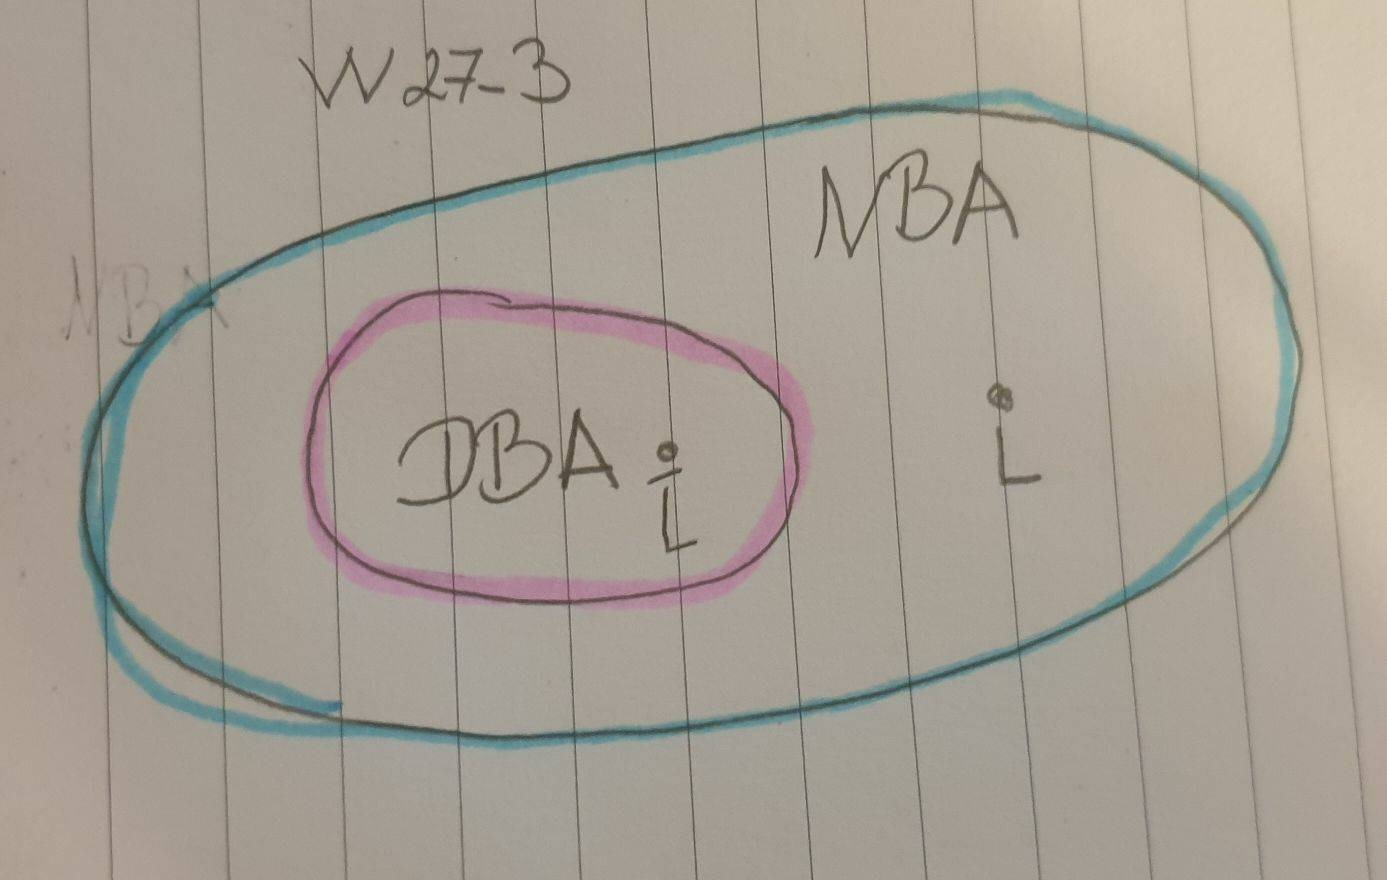 W27-3
NBA
NBA
DBA
L
L